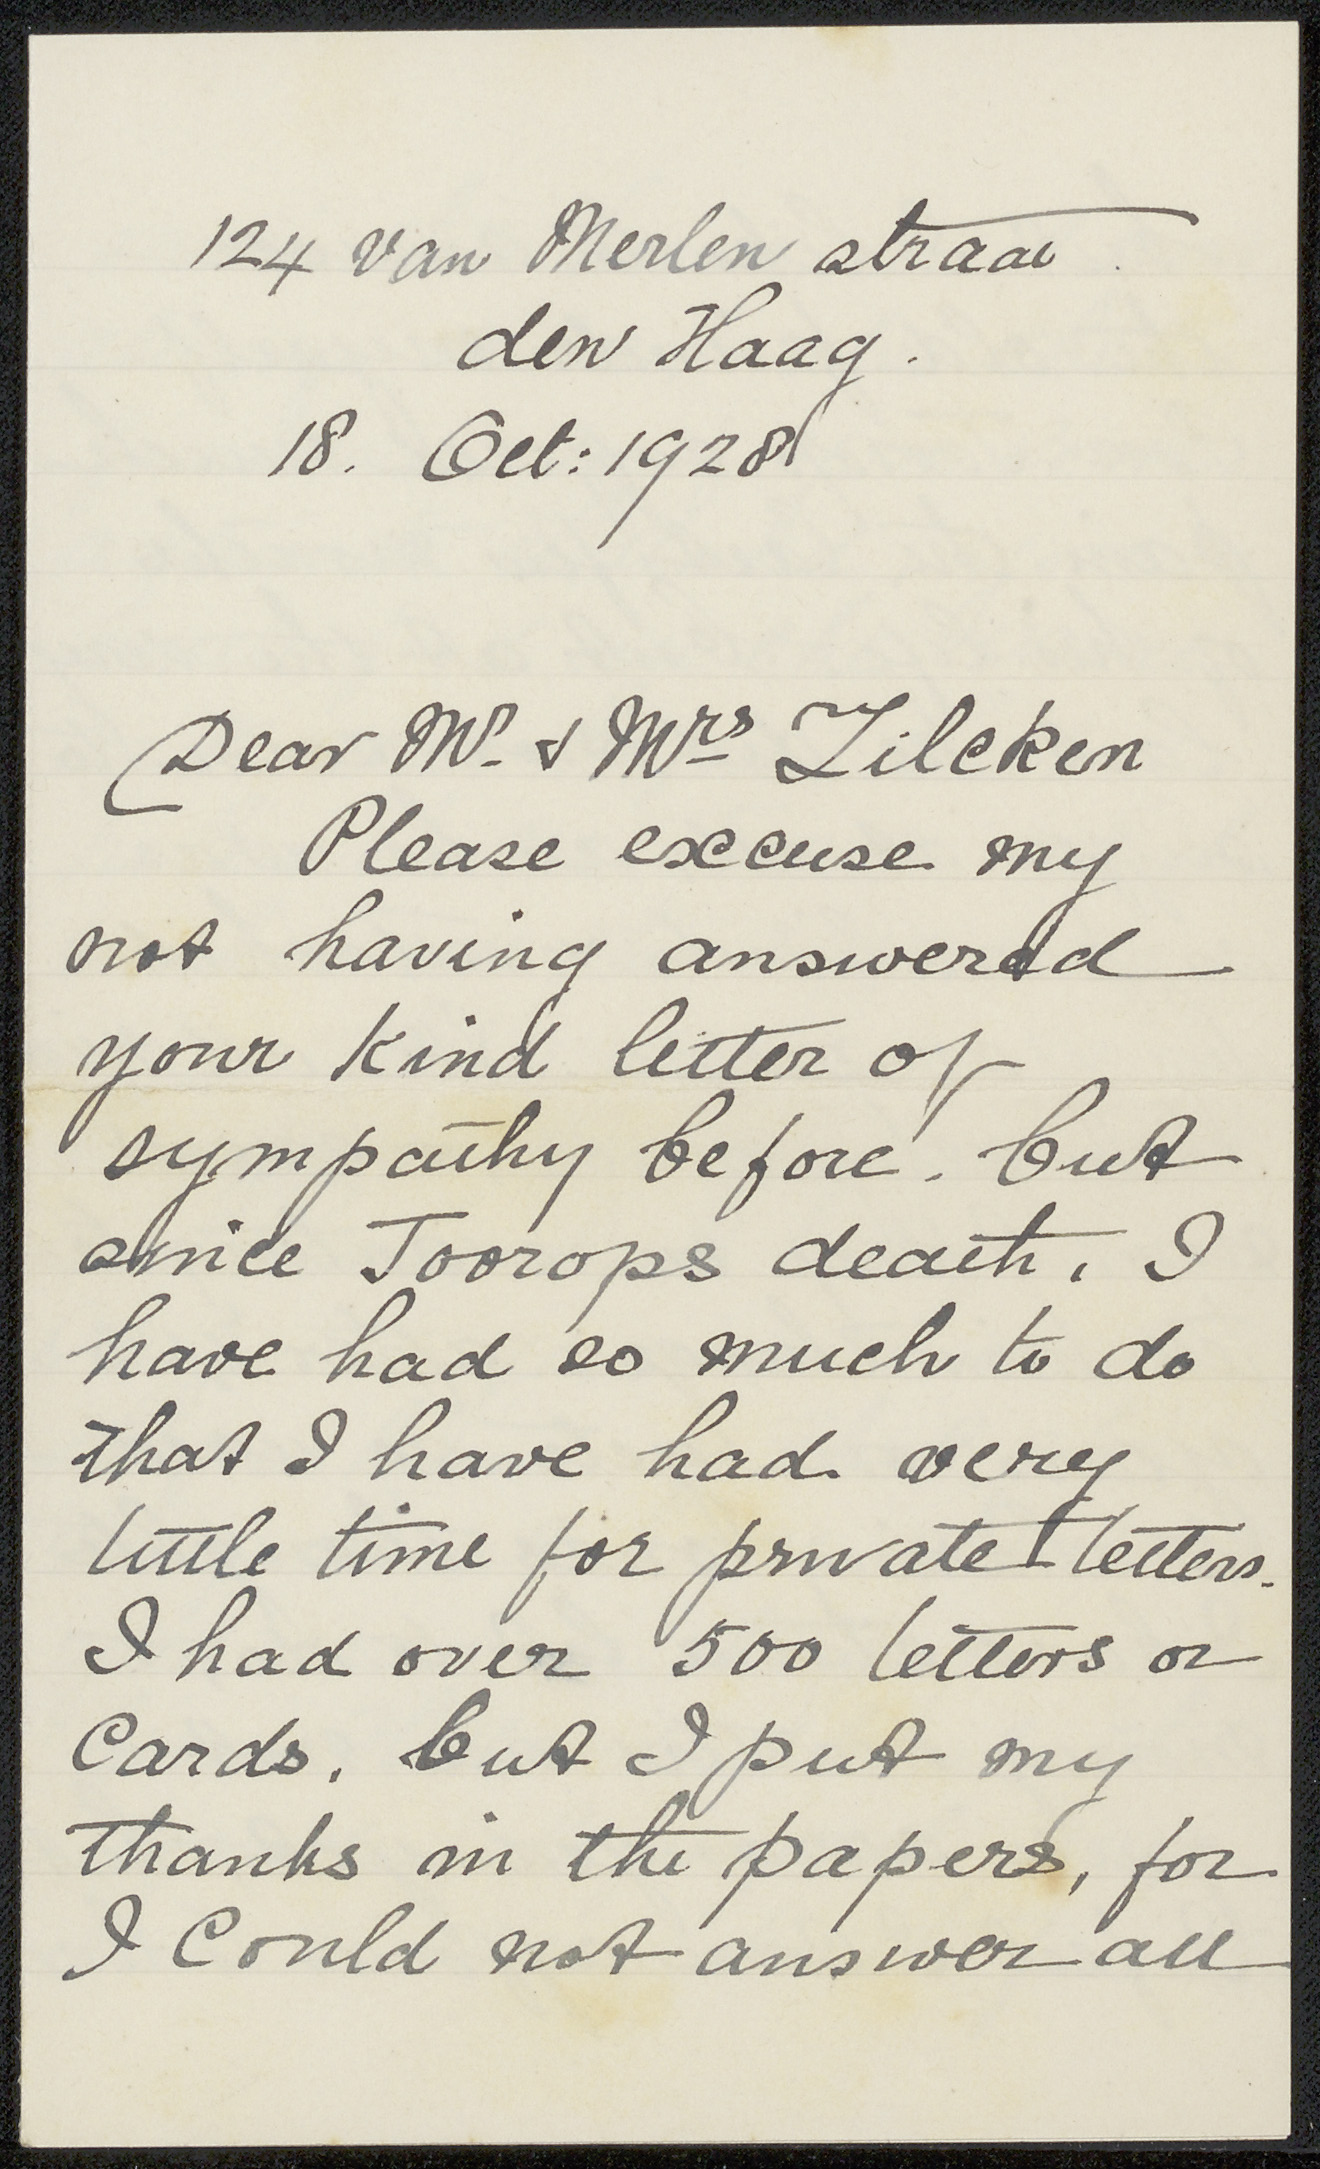 124 van Merlen straat
den Haag.
18. Oct: 1928
Dear Mr. & Mrs Zilcken
Please excuse my
not having answered
your kind letter of
sympathy before. but
since Toorops death, I
have had so much to do
that I have had very
little time for private letters.
I had over 500 letters or
Cards. but I put my
thanks in the papers, for
I Could not answer all